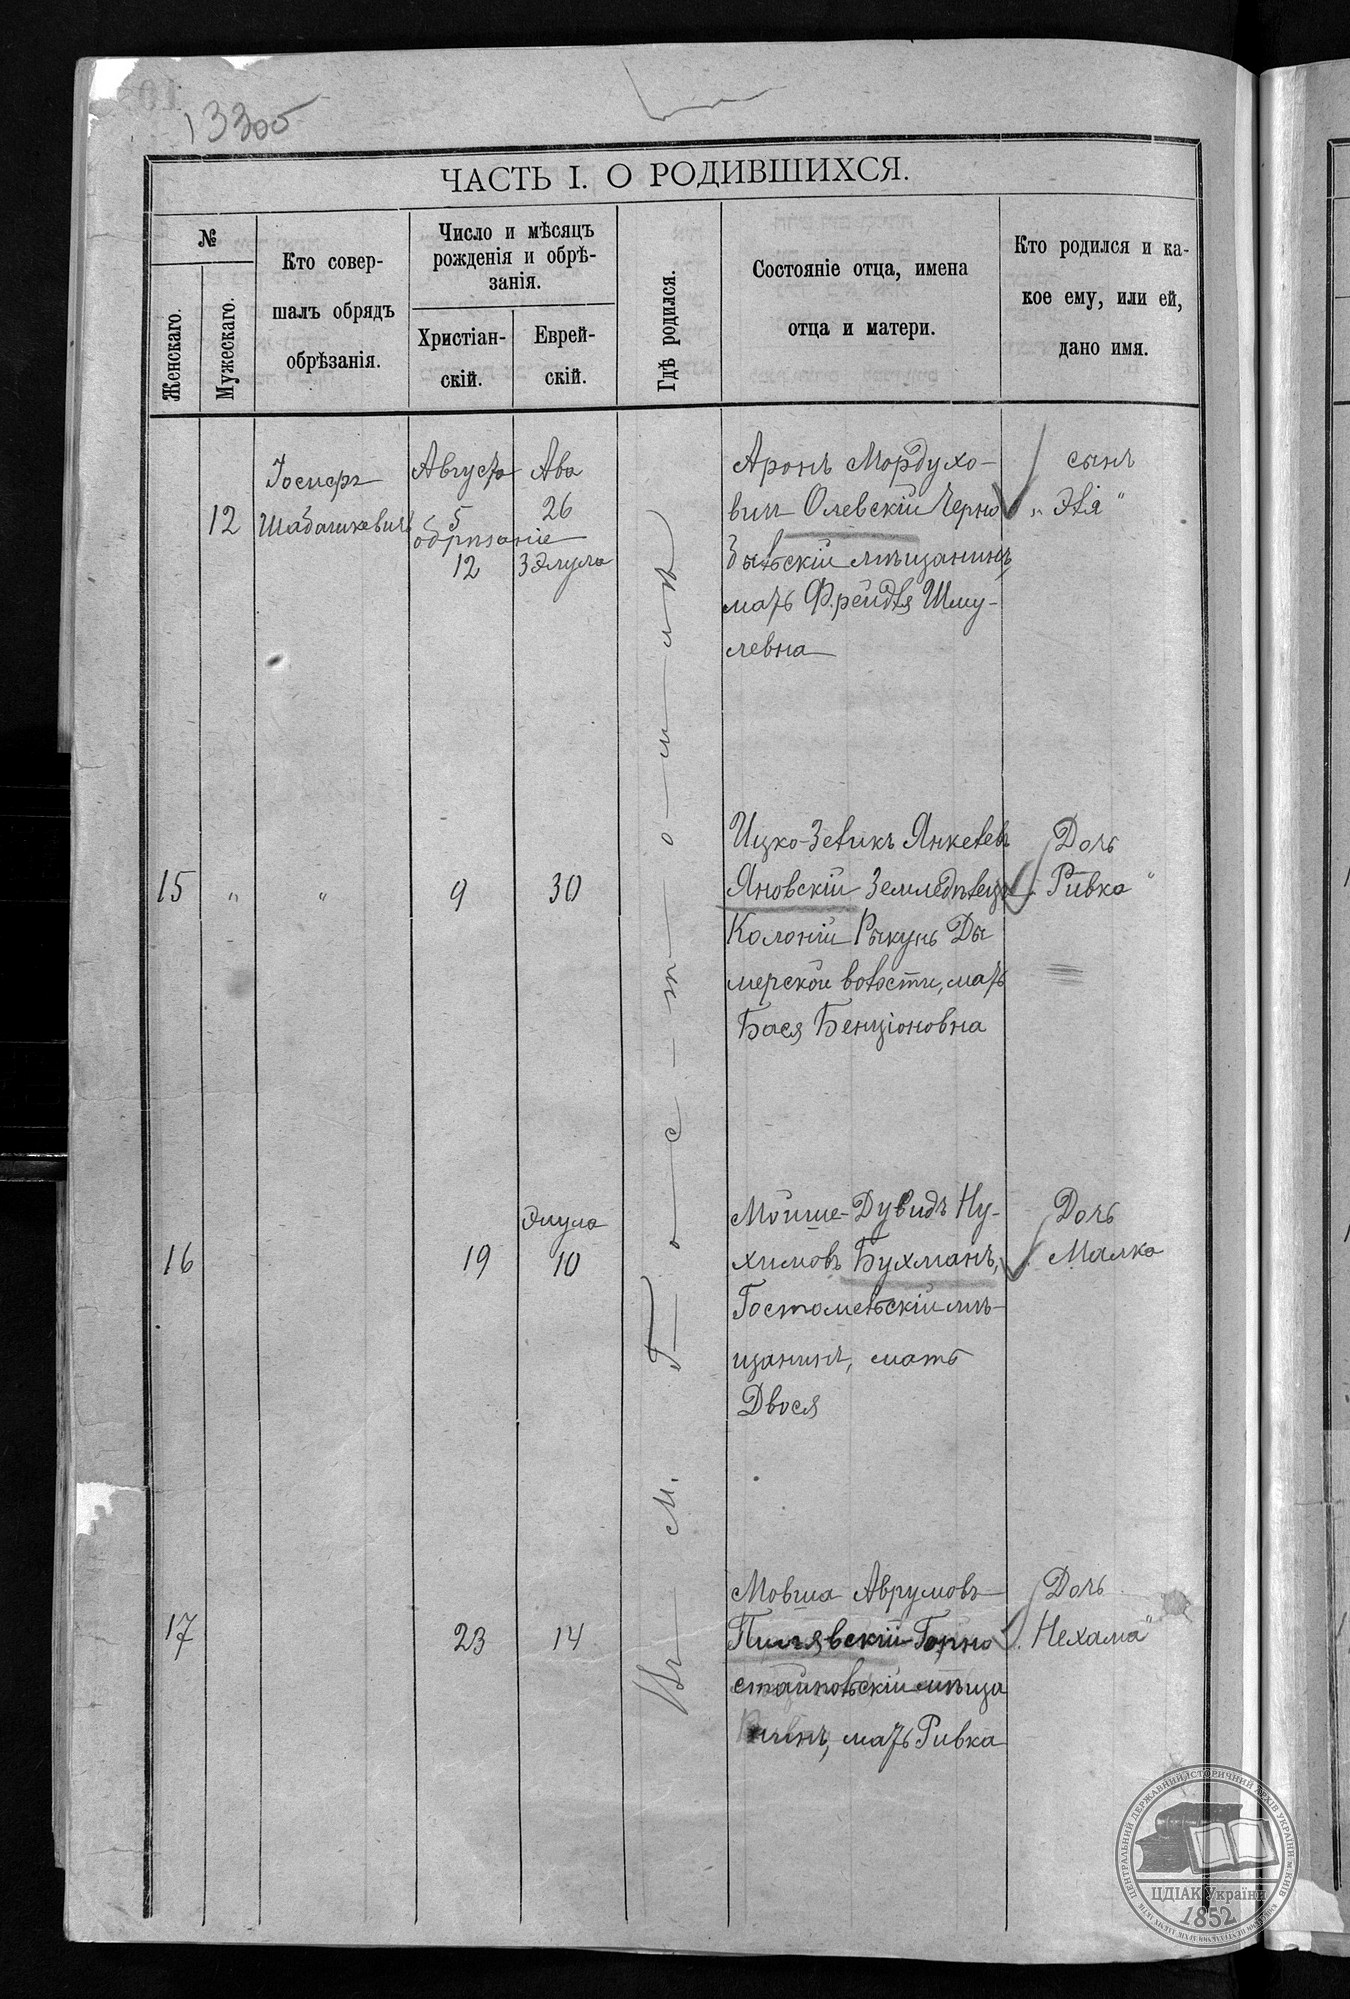 13305
ЧАСТЬ I. О РОДИВШИХСЯ.
№
Женскаго.
Мужескаго.
Кто совер-
шалъ обрядъ
обрѣзанія.
Число и мѣсяцъ
рожденія и обрѣ-
занія.
Христіан-
скій.
Еврей-
скій.
Гдѣ родился.
Состояніе отца, имена
отца и матери.
Кто родился и ка-
кое ему, или ей,
дано имя.
12
Іосифъ
Шабашкевичъ
Августа
5
обрѣзаніе
12
Ава
26
3 Элула
Въ м. Гостомлѣ
Аронъ Мордухо-
вич Олевскій Черно
быльскій мѣщанинъ
мать Фрейдля Шму-
левна
сынъ
" Элія "
15
"
"
9
30
Ицко-Зелікъ Янкелевъ
Яновскій Земледѣлецъ
Колоніи Рыкунь Ды
мерской волости, мать
Бася Бенціоновна
Дочь
Ривка "
16
19
Элула
10
Мойше-Дувидъ Ну-
химовъ Бухманъ,
Гостомельскій мѣ-
щанинъ, мать
Двося
Дочь
Малка
17
23
14
Мовша Аврумовъ
Пилявскій Горно
стайпольскій мѣща
нинъ, мать Ривка
Дочь
Нехама "
ЦЕНТРАЛЬНИЙ ДЕРЖАВНИЙ ІСТОРИЧНИЙ АРХІВ УКРАЇНИ м. КИЇВ
ЦДІАК України
1852